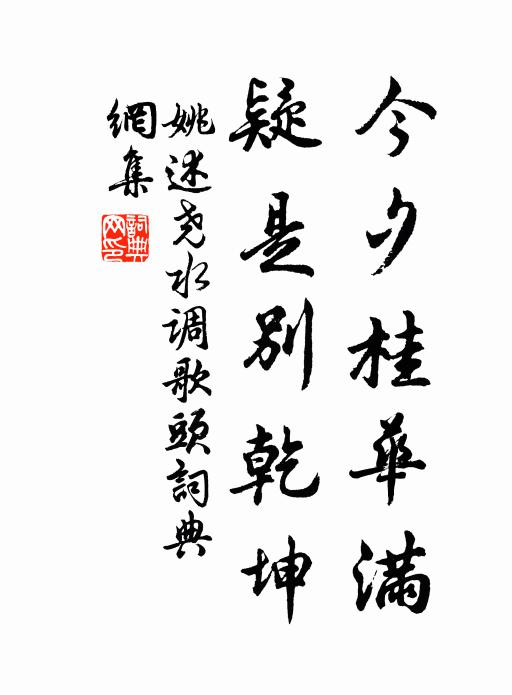 今夕桂華滿
疑是別乾坤
姚述尧水调歌頭詞典
網集
詞典网印